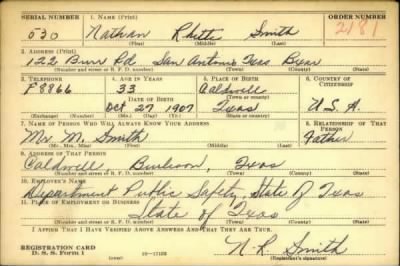 SERIAL NUMBER 1. NAME (Print) ORDER NUMBER
530 Nathan Rhett Smith 2181
(First) (Middle) (Last)
2. ADDRESS (Print)
122 Burr Rd San Antonio Texas Bexar
(Number and street or R. F. D. number) (Town) (County) (State)
3. TELEPHONE 4. AGE IN YEARS 5. PLACE OF BIRTH 6. COUNTRY OF CITIZENSHIP
F8966 33 Caldwell
DATE OF BIRTH
Oct 27 1907 Texas U.S.A.
(Exchange) (Number) (Mo.) (Day) (Yr.) (State or country)
7. NAME OF PERSON WHO WILL ALWAYS KNOW YOUR ADDRESS 8. RELATIONSHIP OF THAT PERSON
Mr. M. Smith Father
(Mr., Mrs., Miss) (First) (Middle) (Last)
9. ADDRESS OF THAT PERSON
Caldwell Burleson, Texas
(Number and street or R. F. D. number) (Town) (County) (State)
10. EMPLOYER'S NAME
Department Public Safety, State of Texas
11. PLACE OF EMPLOYMENT OR BUSINESS
State of Texas
(Number and street or R. F. D. number) (Town) (County) (State)
I AFFIRM THAT I HAVE VERIFIED ABOVE ANSWERS AND THAT THEY ARE TRUE.
N. R. Smith
REGISTRATION CARD
D. S. S. Form 1 (over) 16—17105 (Registrant's signature)